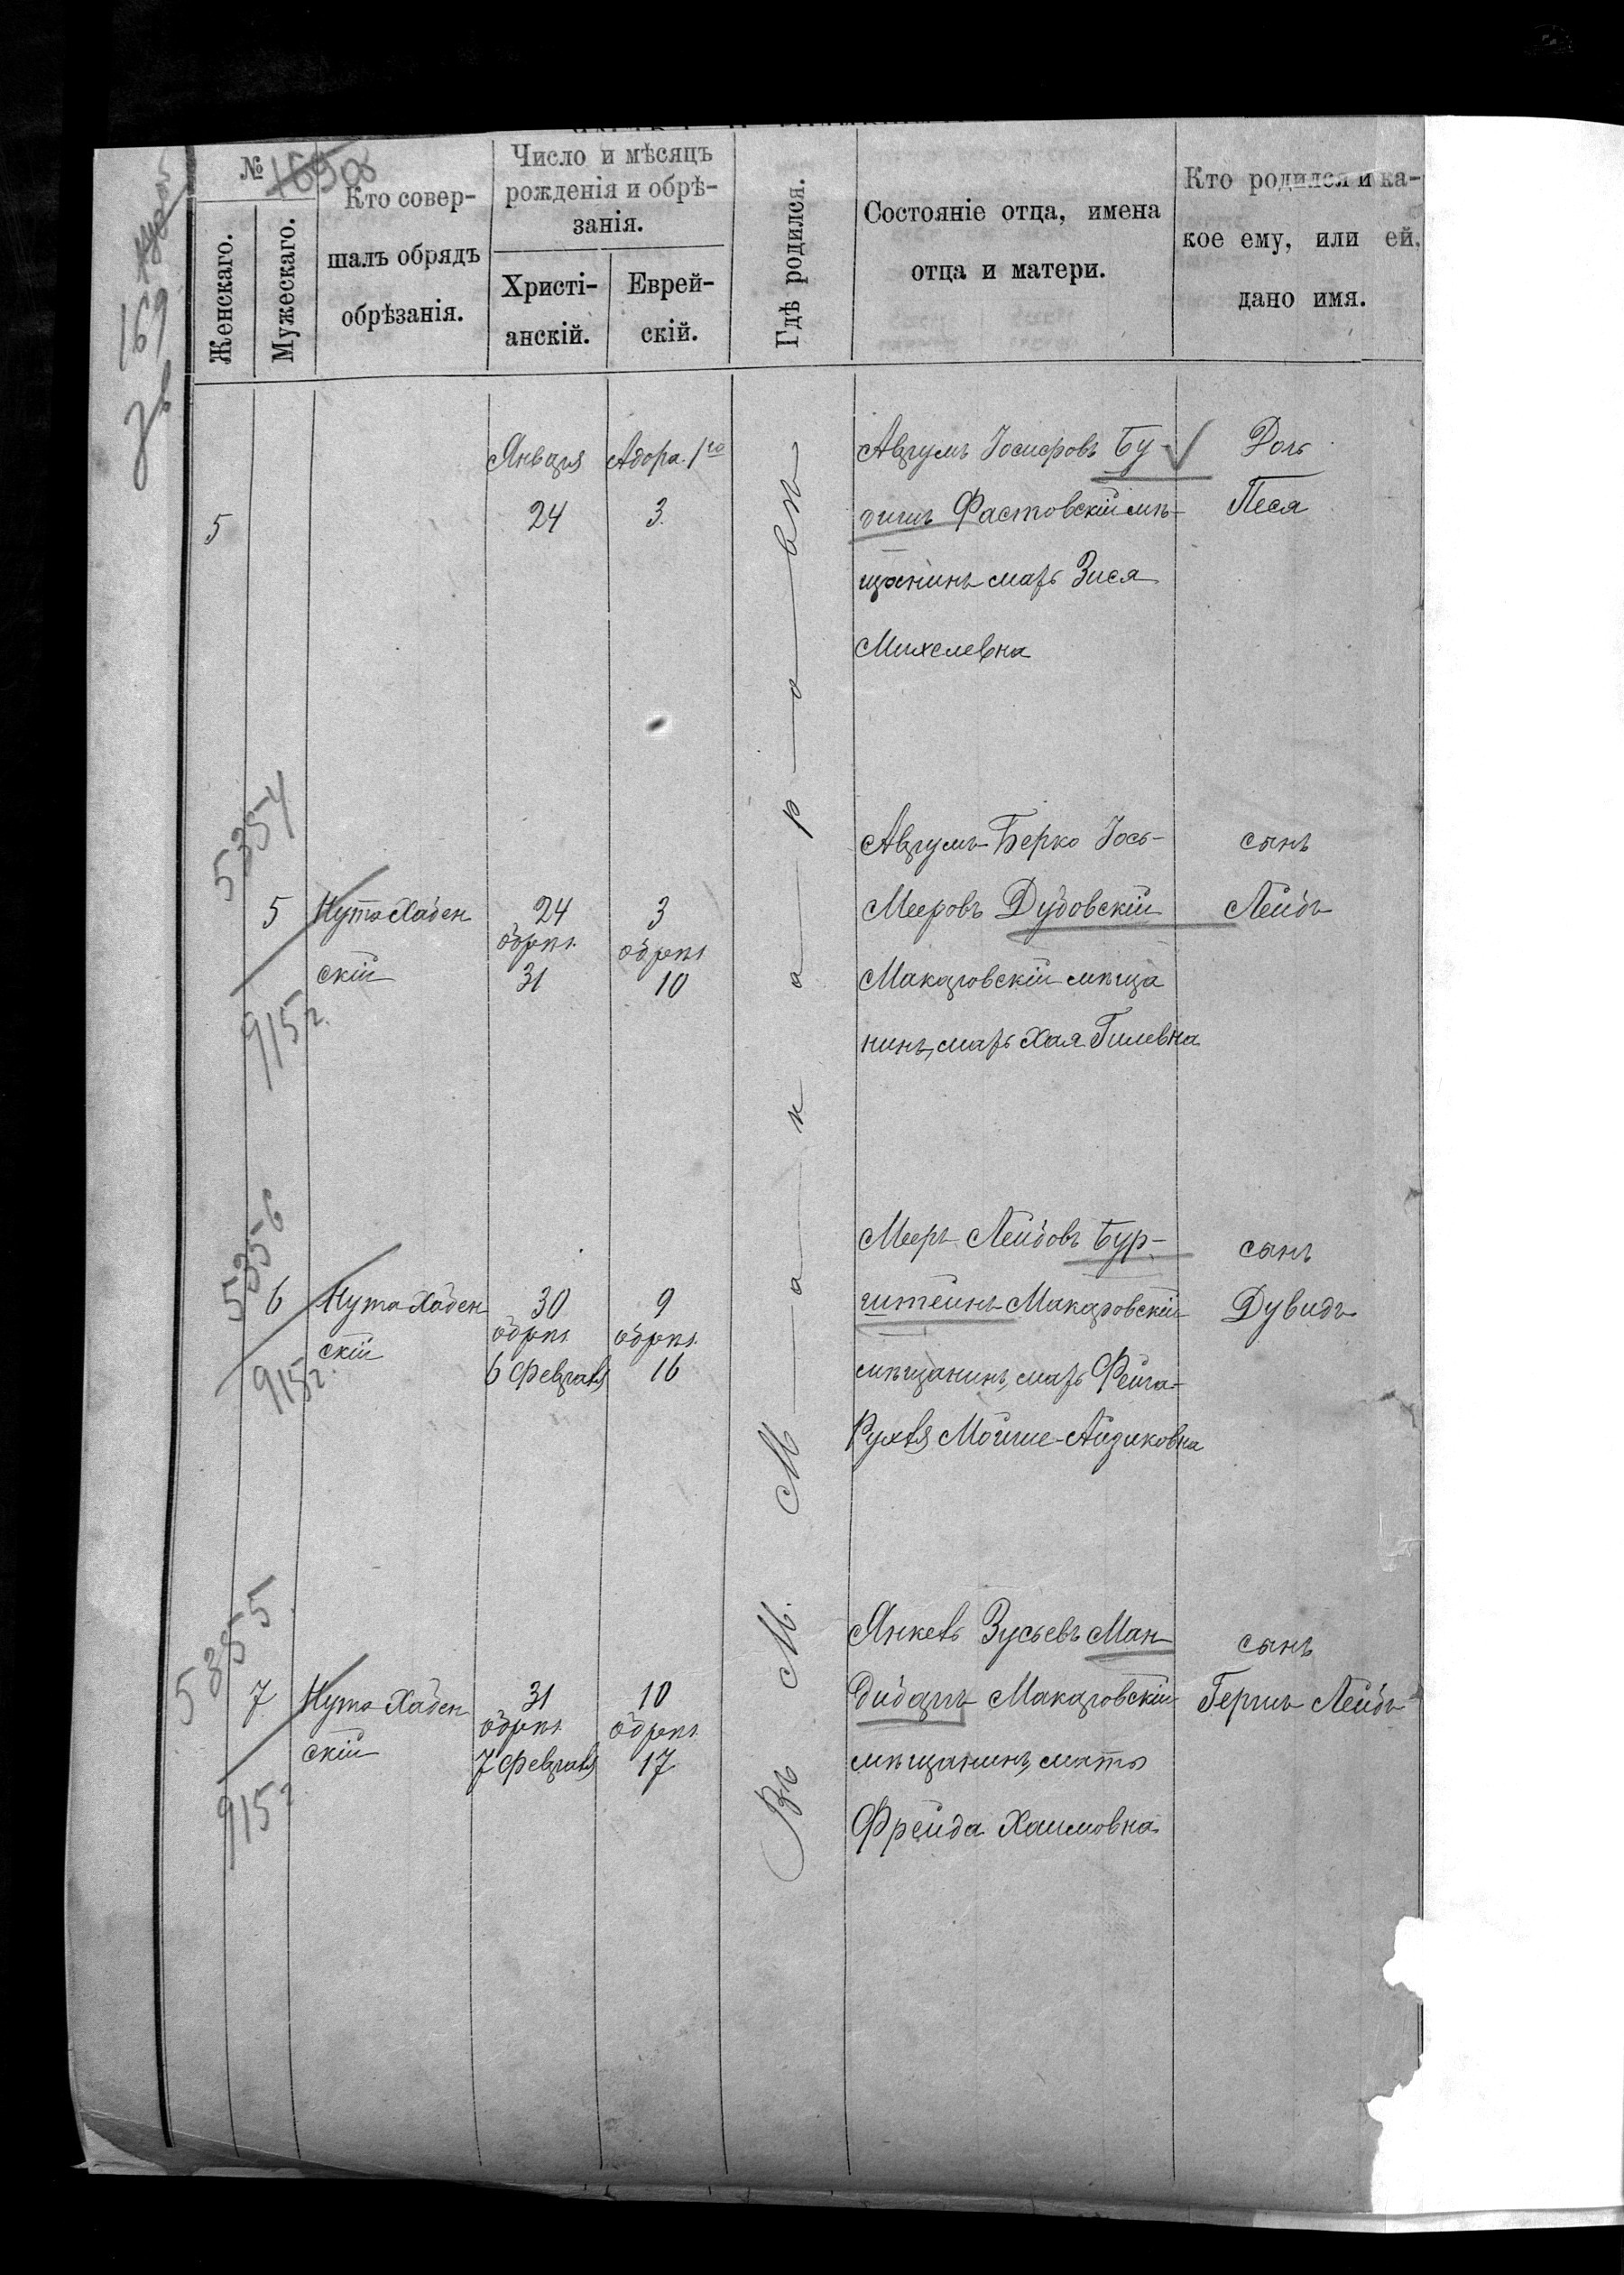 №
Женскаго.
Мужескаго.
Кто совер-
шалъ обрядъ
обрѣзанія.
Число и мѣсяцъ
рожденія и обрѣ-
занія.
Христі-
анскій.
Еврей-
скій.
Гдѣ родился.
Состояніе отца, имена
отца и матери.
Кто родился и ка-
кое ему, или ей,
дано имя.
169
Въ М. Макаровѣ
Января
Адора 1го
5
24
3
Аврумъ Іосифовъ Бу-
Фастовскій мѣ-
щанинъ мать Зися
Михелевна
Дочь
Песя
5354
5
915 г.
Нута Хаден
скій
24
обрѣз.
31
3
обрѣз.
10
Аврумъ-Берко Іось-
Мееровъ Дудовскій
Макаровскій мѣща
нинъ, мать Хая Гилевна
сынъ
Лейбъ
5356
6
915 г.
Нута Хаден
скій
30
обрѣз.
6 Февраля
9
обрѣз.
16
Мееръ Лейбовъ Бур-
штейнъ Макаровскій
мѣщанинъ, мать Фейга-
Рухля Мойше-Айзиковна
сынъ
Дувидъ
5355
7
915 г
Нута Хаден
скій
31
обрѣз.
7 Февраля
10
обрѣз.
17
Янкель Зусьевъ Ман-
Макаровскій
мѣщанинъ, мать
Фрейда Хаимовна
сынъ
Гершъ Лейбъ